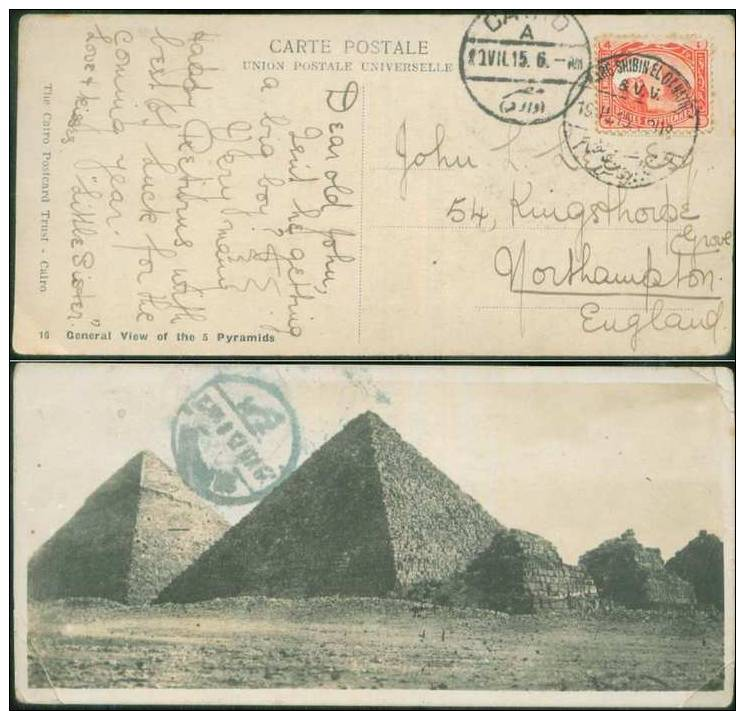 CARTE POSTALE
UNION POSTALE UNIVERSELLE
CAIRO
A
VII.15.6.-
SHIBIN EL
4
Dear old John,
he getting
a big boy!
Very many
Happy Returns with
best of luck for the
coming year.
Love &
"Little Sister."
John L
54, Kingsthorpe
Grove
Northampton
England
The Cairo Postcard Trust - Cairo
16 General View of the 5 Pyramids